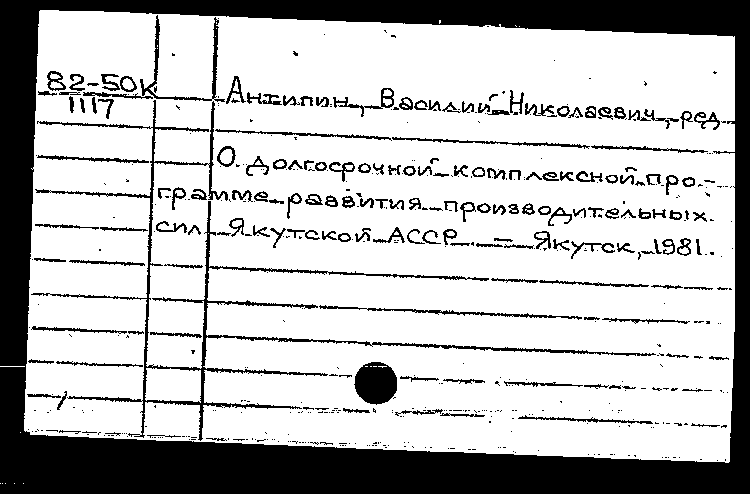 82-50к
1117
Антипин, Василий Николаевич, ред
О долгосрочной комплексной про-
грамме развития производительных
сил Якутской АССР. – Якутск, 1981.